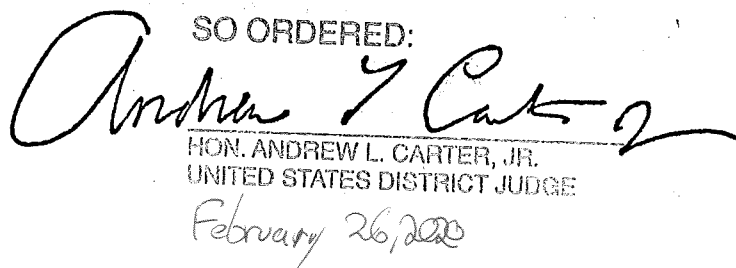 SO ORDERED:
Andrew L Carter Jr
HON. ANDREW L. CARTER, JR.
UNITED STATES DISTRICT JUDGE
February 26, 2020